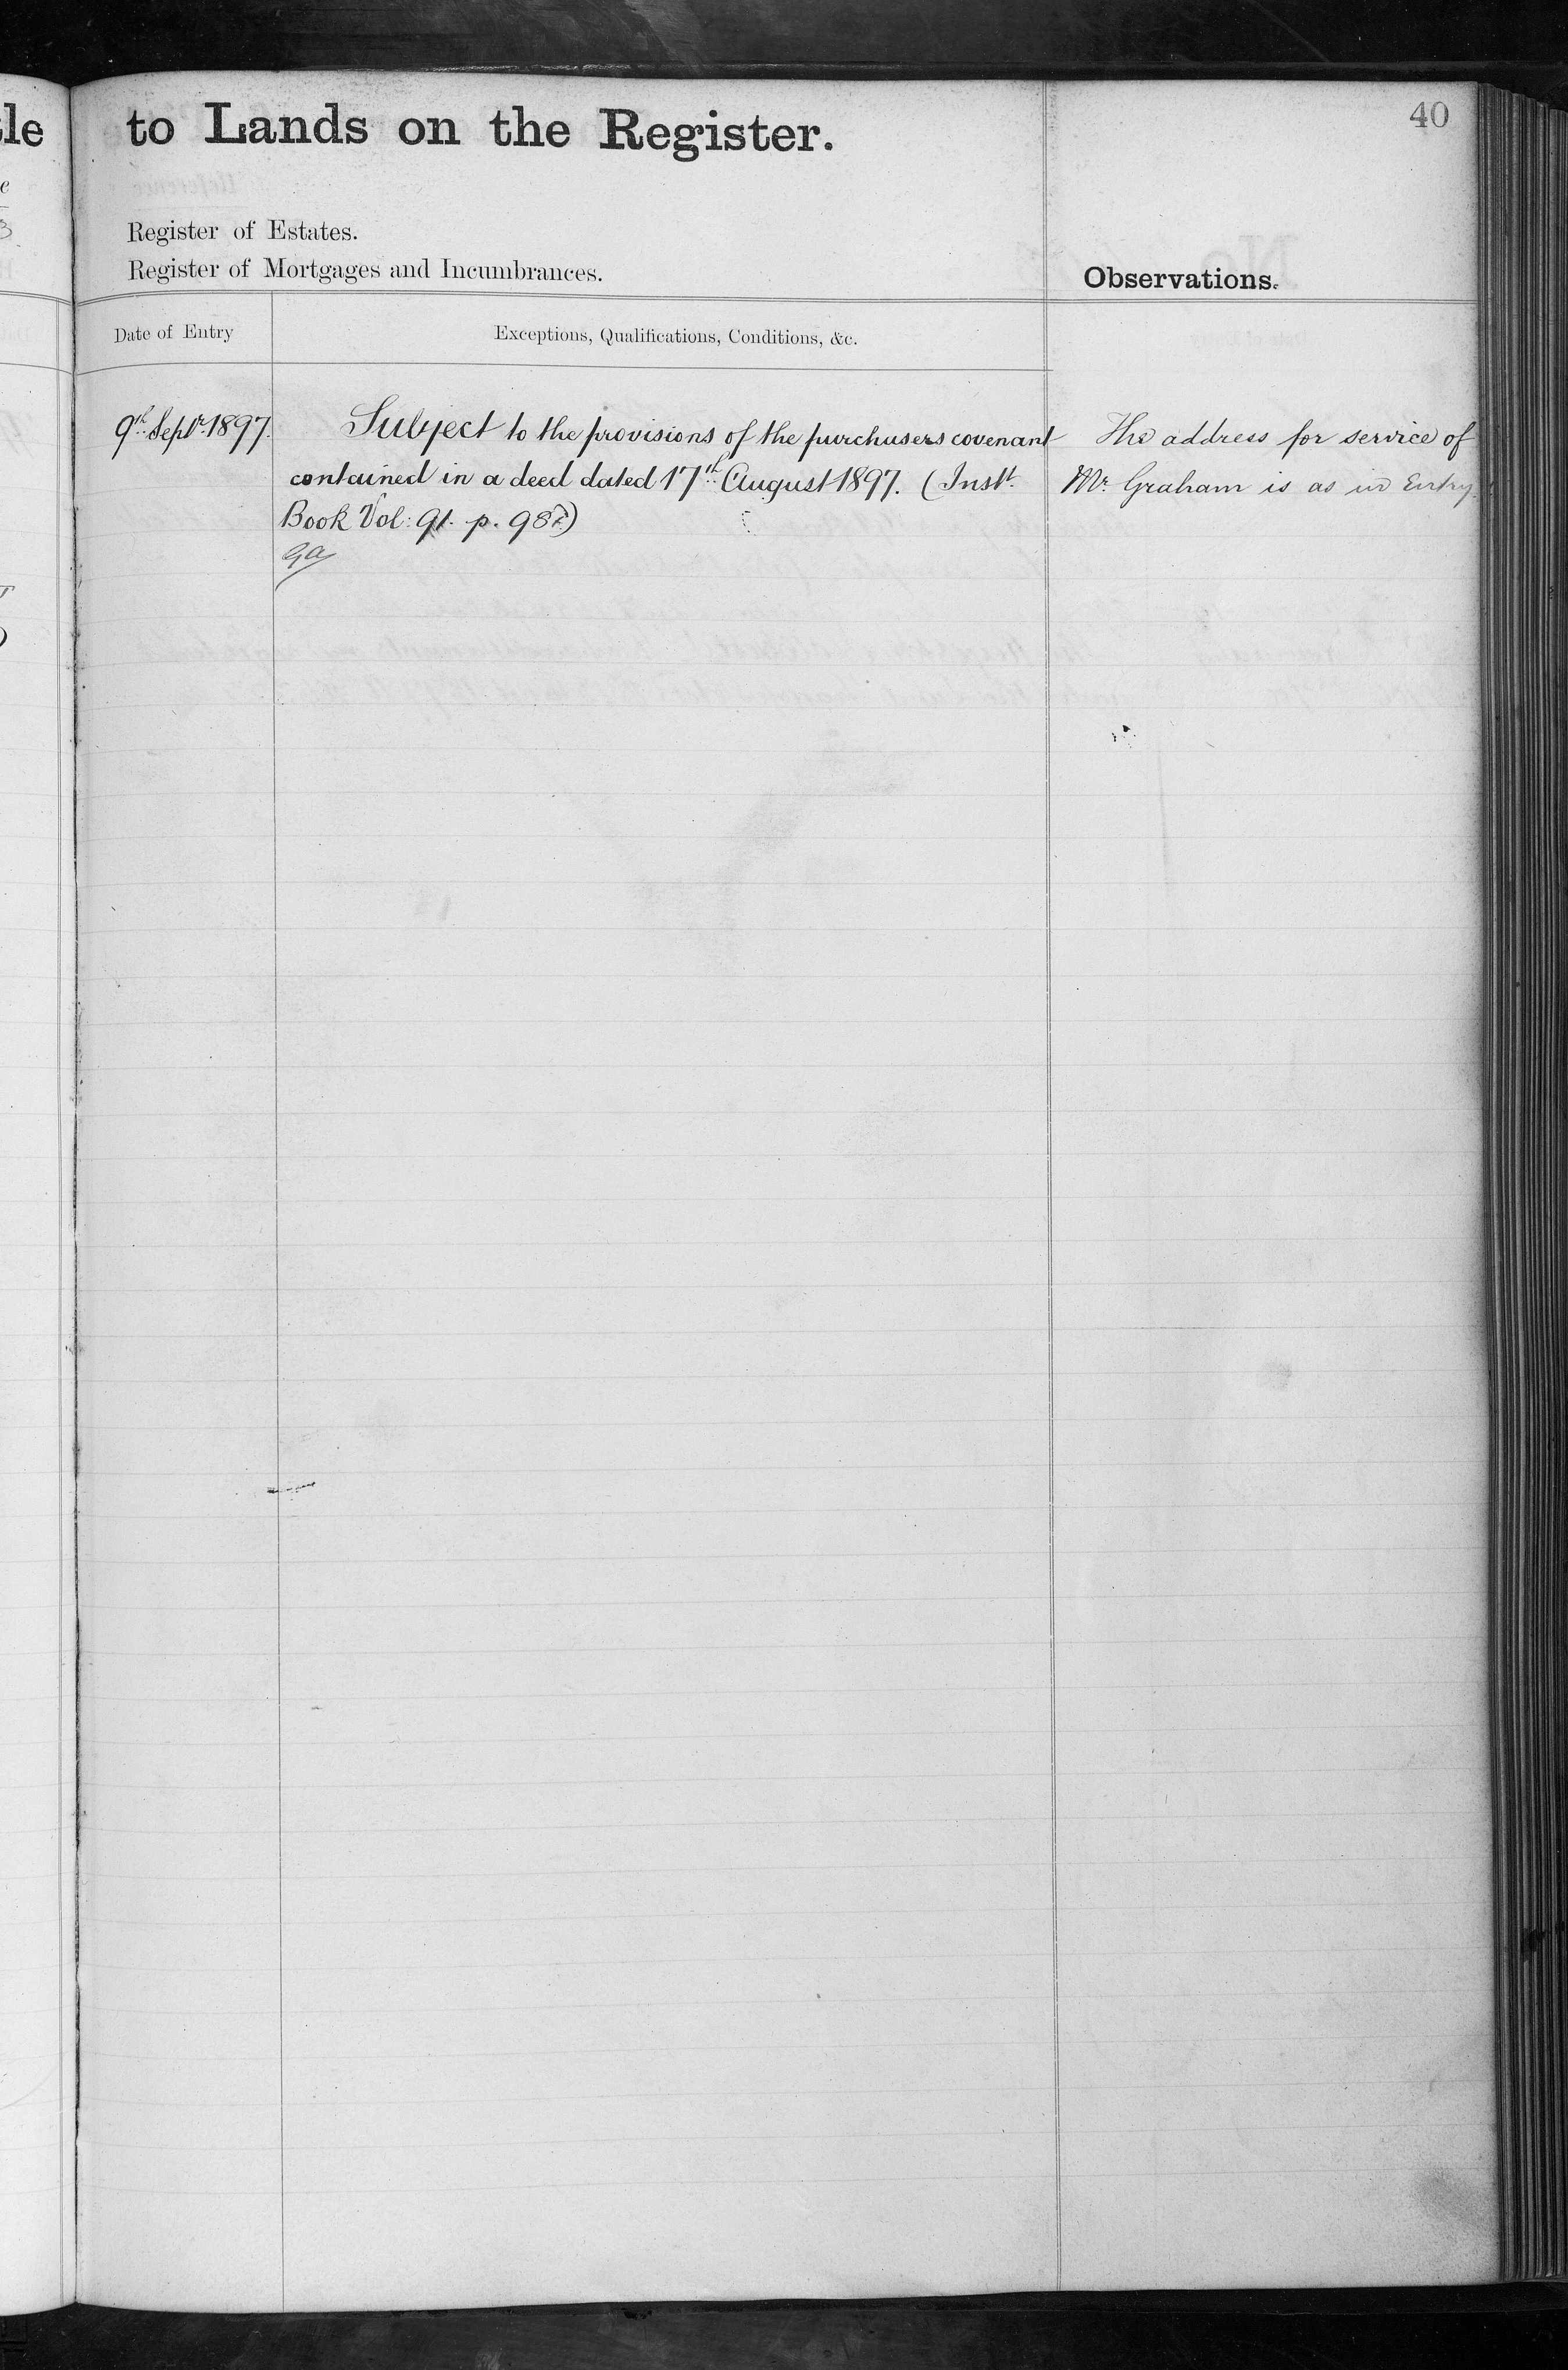 le
to Lands on the Register.
40
Register of Estates.
Register of Mortgages and Incumbrances.
Observations.
Date of Entry
Exceptions, Qualifications, Conditions, &c.
9th Septr. 1897.
Subject to the provisions of the purchasers covenant
contained in a deed dated 17th August 1897. (Instt.
Book Vol: 91. p. 987)
The address for service of
Mr. Graham is as in Entry